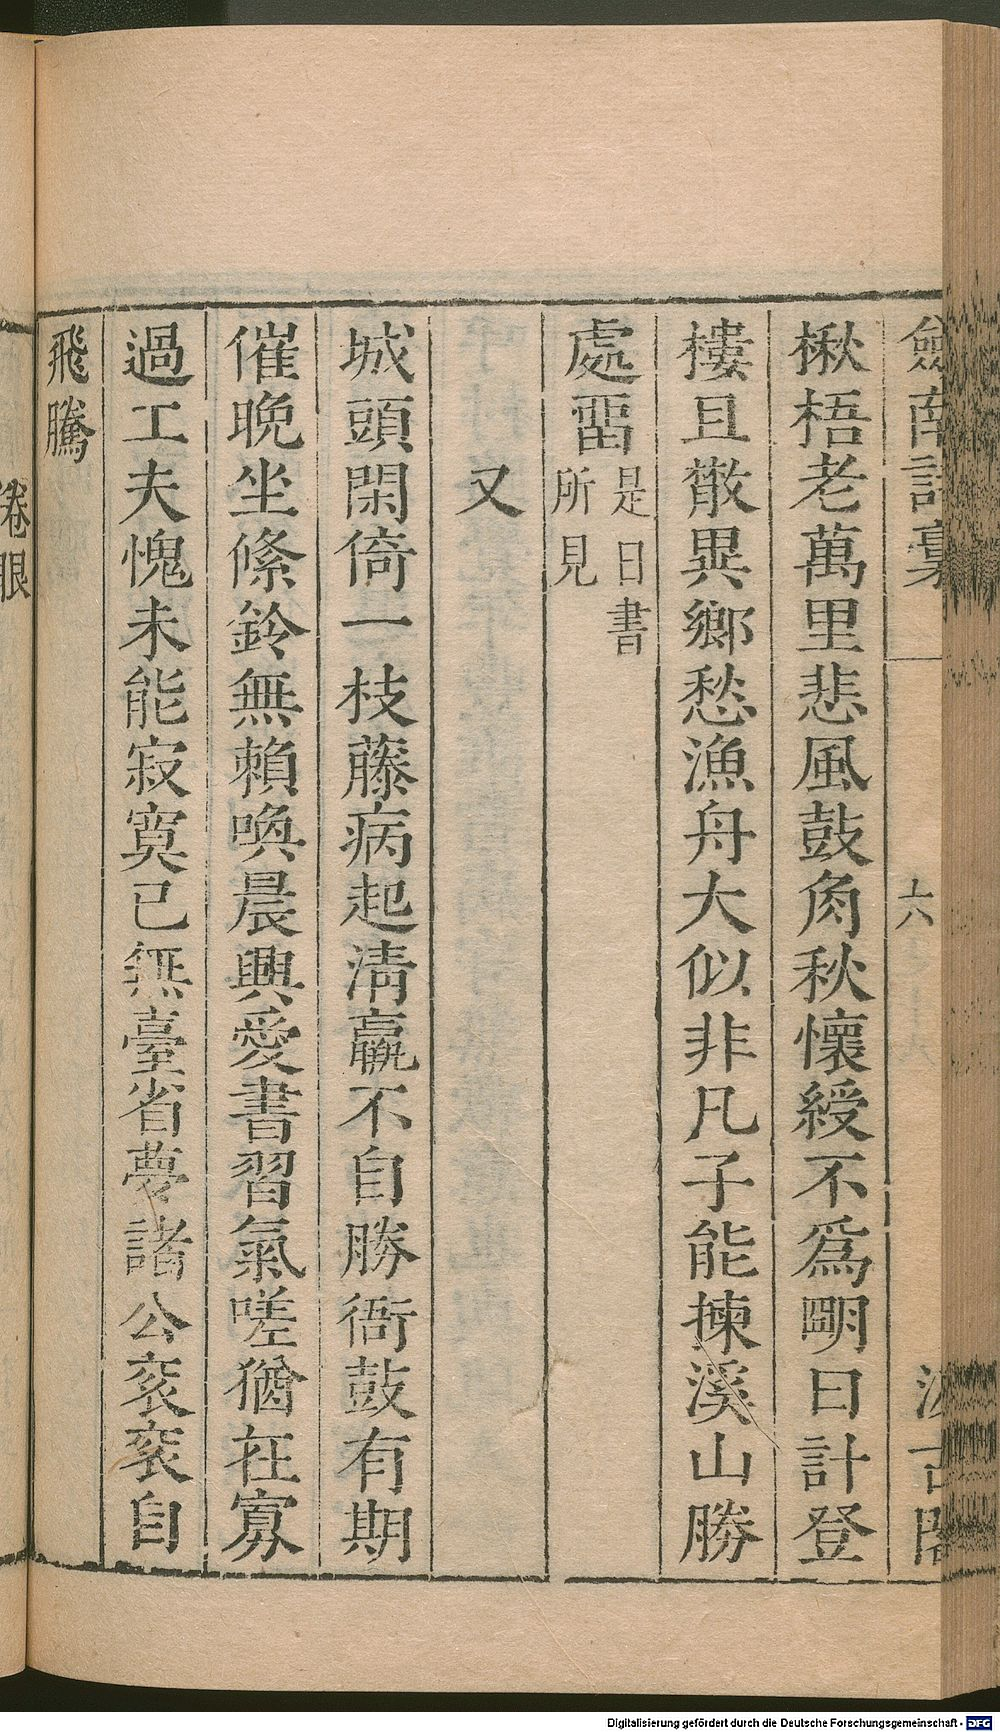 劒南詩稾
六
汲古閣
楸梧老萬里悲風鼓角秋懷綬不爲朙日計登
樓且散異鄉愁漁舟大似非凡子能揀溪山勝
處畱是日書
所見
又
城頭閑倚一枝藤病起清羸不自勝衙鼓有期
催晚坐絛鈴無賴喚晨興愛書習氣嗟猶在寡
過工夫愧未能寂寞已無臺省夢諸公袞袞自
飛騰
卷眼
Digitalisierung gefördert durch die Deutsche Forschungsgemeinschaft - DFG